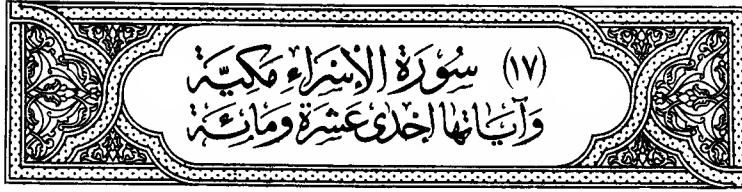 (١٧) سُورَة الإسْرَاءِ مَكِيَّة
وَآيَاتها اِحْدى عَشرَة وَمَائَة